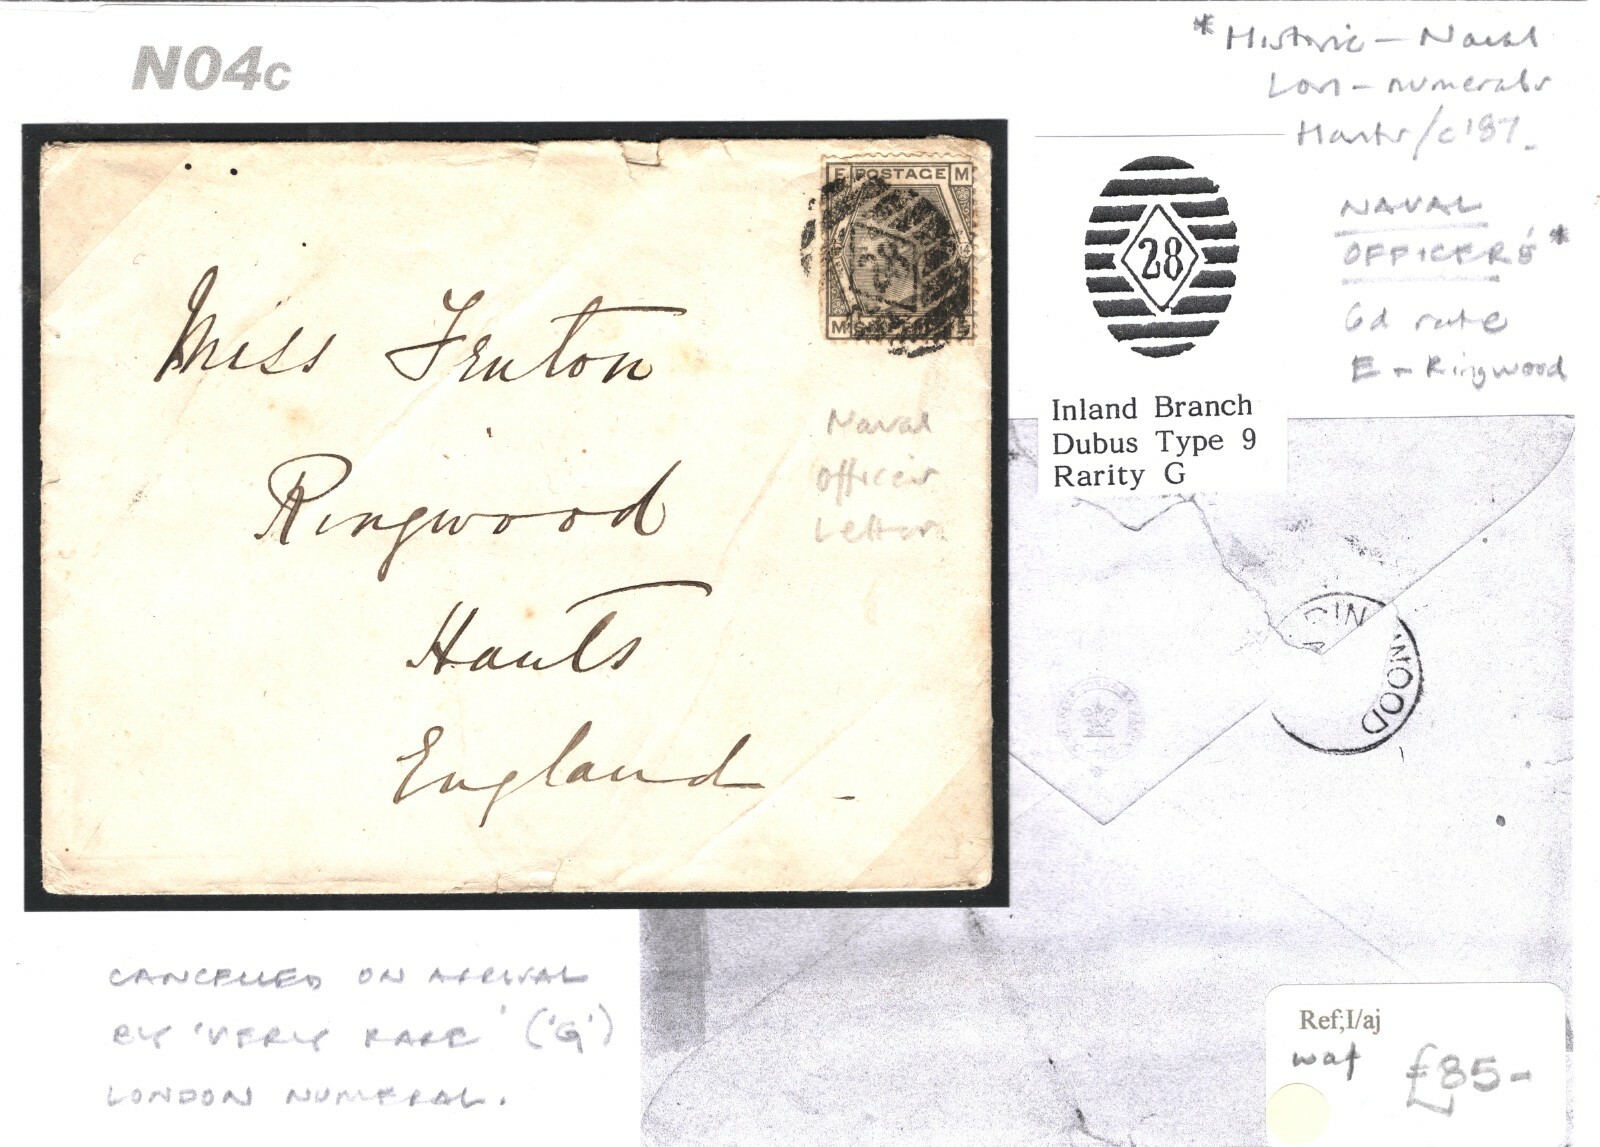 N04c
*Historic – Naval
Lon – numerals
Hants/c'87.
E POSTAGE M
28
NAVAL
OFFICER'S *
6d rate
E – Ringwood
28
Inland Branch
Dubus Type 9
Rarity G
Miss Fenton
Ringwood
Hants
England
Naval
Officer
Letter
WOOD
CANCELLED ON ARRIVAL
BY 'VERY RARE' ('G')
LONDON NUMERAL.
Ref;I/aj
waf £85-